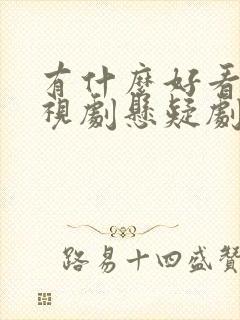 有什麼好看
視劇懸疑劇
路易十四盛贊